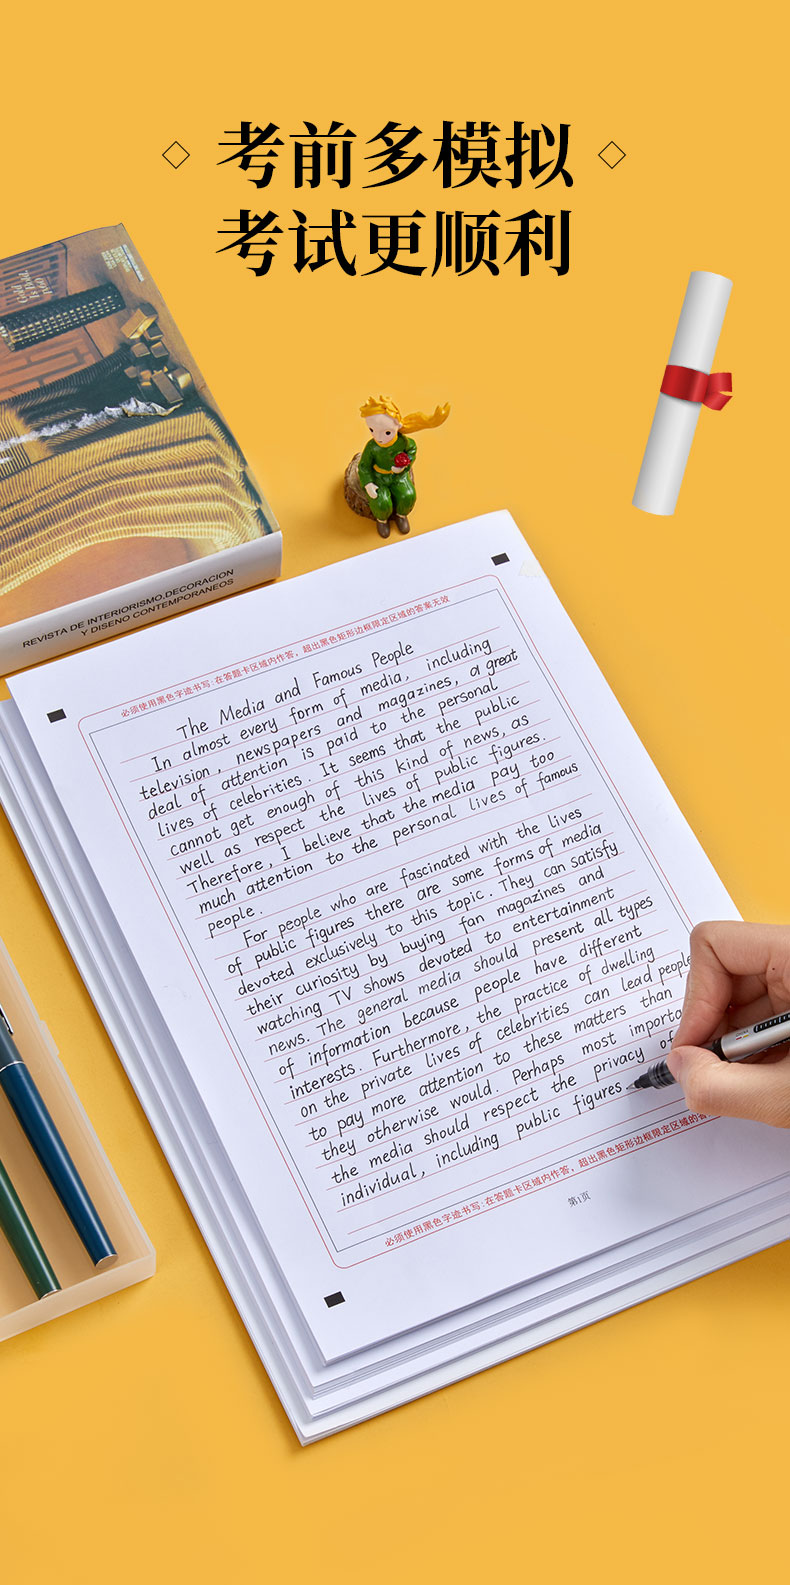 考前多模拟
考试更顺利
Gold
Is Bold.
p.160
REVISTA DE INTERIORISMO,DECORACION
Y DISENO CONTEMPORANEOS
必须使用黑色字迹书写:在答题卡区域内作答，超出黑色矩形边框限定区域的答案无效
The Media and Famous People
In almost every form of media, including
television, newspapers and magazines, a great
deal of attention is paid to the personal
lives of celebrities. It seems that the public
cannot get enough of this kind of news, as
well as respect the lives of public figures.
Therefore, I believe that the media pay too
much attention to the personal lives of famous
people.
For people who are fascinated with the lives
of public figures there are some forms of media
devoted exclusively to this topic. They can satisfy
their curiosity by buying fan magazines and
watching TV shows devoted to entertainment
news. The general media should present all types
of information because people have different
interests. Furthermore, the practice of dwelling
on the private lives of celebrities can lead people
to pay more attention to these matters than
they otherwise would. Perhaps most importa
the media should respect the privacy of
individual, including public figures.
必须使用黑色字迹书写:在答题卡区域内作答，超出黑色矩形边框限定区域的答
第1页